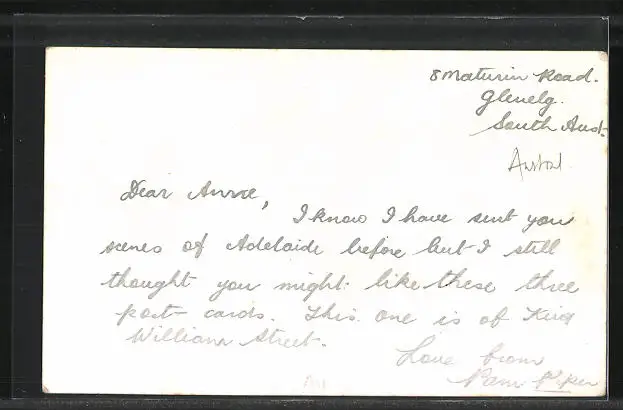 8 Maturin Road.
Glenelg.
South Aust.
Dear Annie,
I know I have sent you
scenes of Adelaide before but I still
thought you might like these three
post cards. This one is of King
William Street.
Love from
Pam Piper